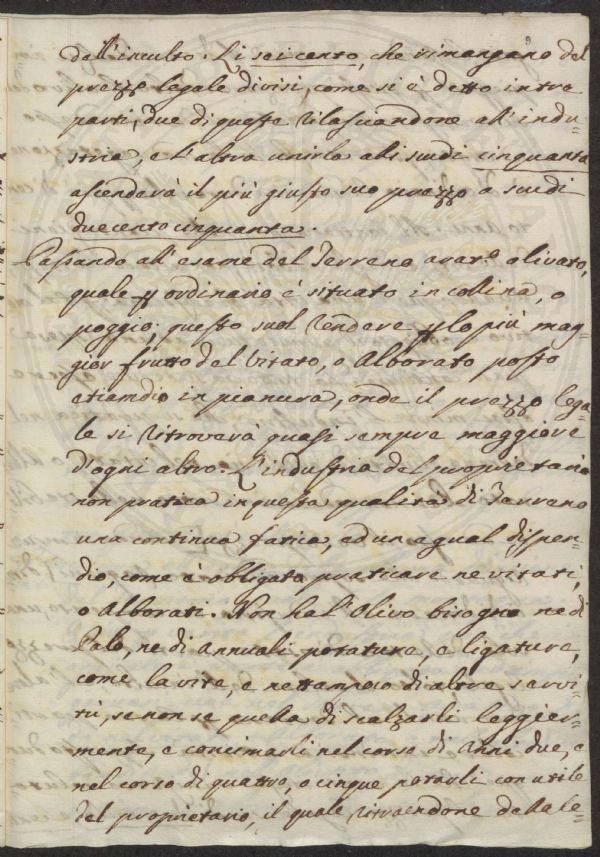 dall'inculto. Li seicento, che rimangano del
prezzo legale divisi, come si è detto in tre
parti, due di queste rilasciandone all'indu-
stria, e l'altra unirla alli scudi cinquanta
ascenderà il più giusto suo prezzo a scudi
duecento cinquanta.
Passando all'esame del Terreno arat.o olivato,
quale p ordinario è situato in collina, o
poggio; questo suol rendere p lo più mag-
gior frutto del Vitato, o Alborato posto
etiamdio in pianura, onde il prezzo lega-
le si ritroverà quasi sempre maggiore
d'ogni altro. L'industria del proprietario
non pratica in questa qualità di Terreno
una continua fatica, ad un egual dispen-
dio, come è obligato praticare ne vitati,
o Alborati. Non ha l'Olivo bisogno ne di
Palo, ne di annuali potature, e ligature,
come la vite, e nettampoco di altre servi-
tù, se non se quella di scalzarli leggier-
mente, e concimarli nel corso di anni due, e
nel corso di quattro, o cinque potarli con utile
del proprietario, il quale ritraendone dalla le-